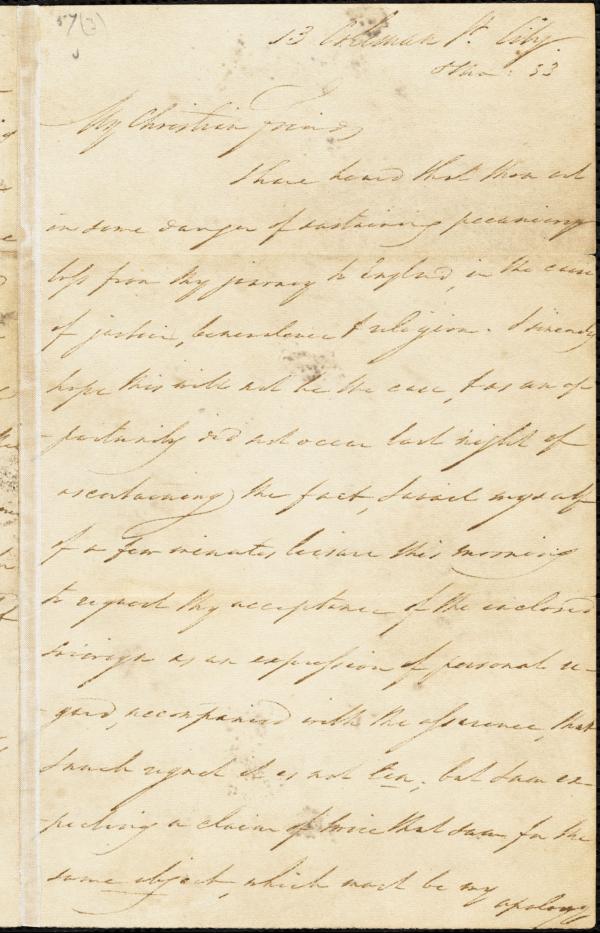 57(2)
13 Coleman St. City
33
My Christian Friend,
I have heard that thou art
in some danger of sustaining pecuniary
loss from thy journey to England, in the cause
of justice, benevolence & religion. I sincerely
hope this will not be the case, & as an op-
-portunity did not occur last night of
ascertaining the fact, I avail myself
of a few minutes leisure this morning
to request thy acceptance of the inclosed
sovereign as an expression of personal re-
-gard, accompanied with the assurance, that
I much regret it is not ten; but I am ex-
-pecting a claim of twice that sum for the
same object, which must be my
apology